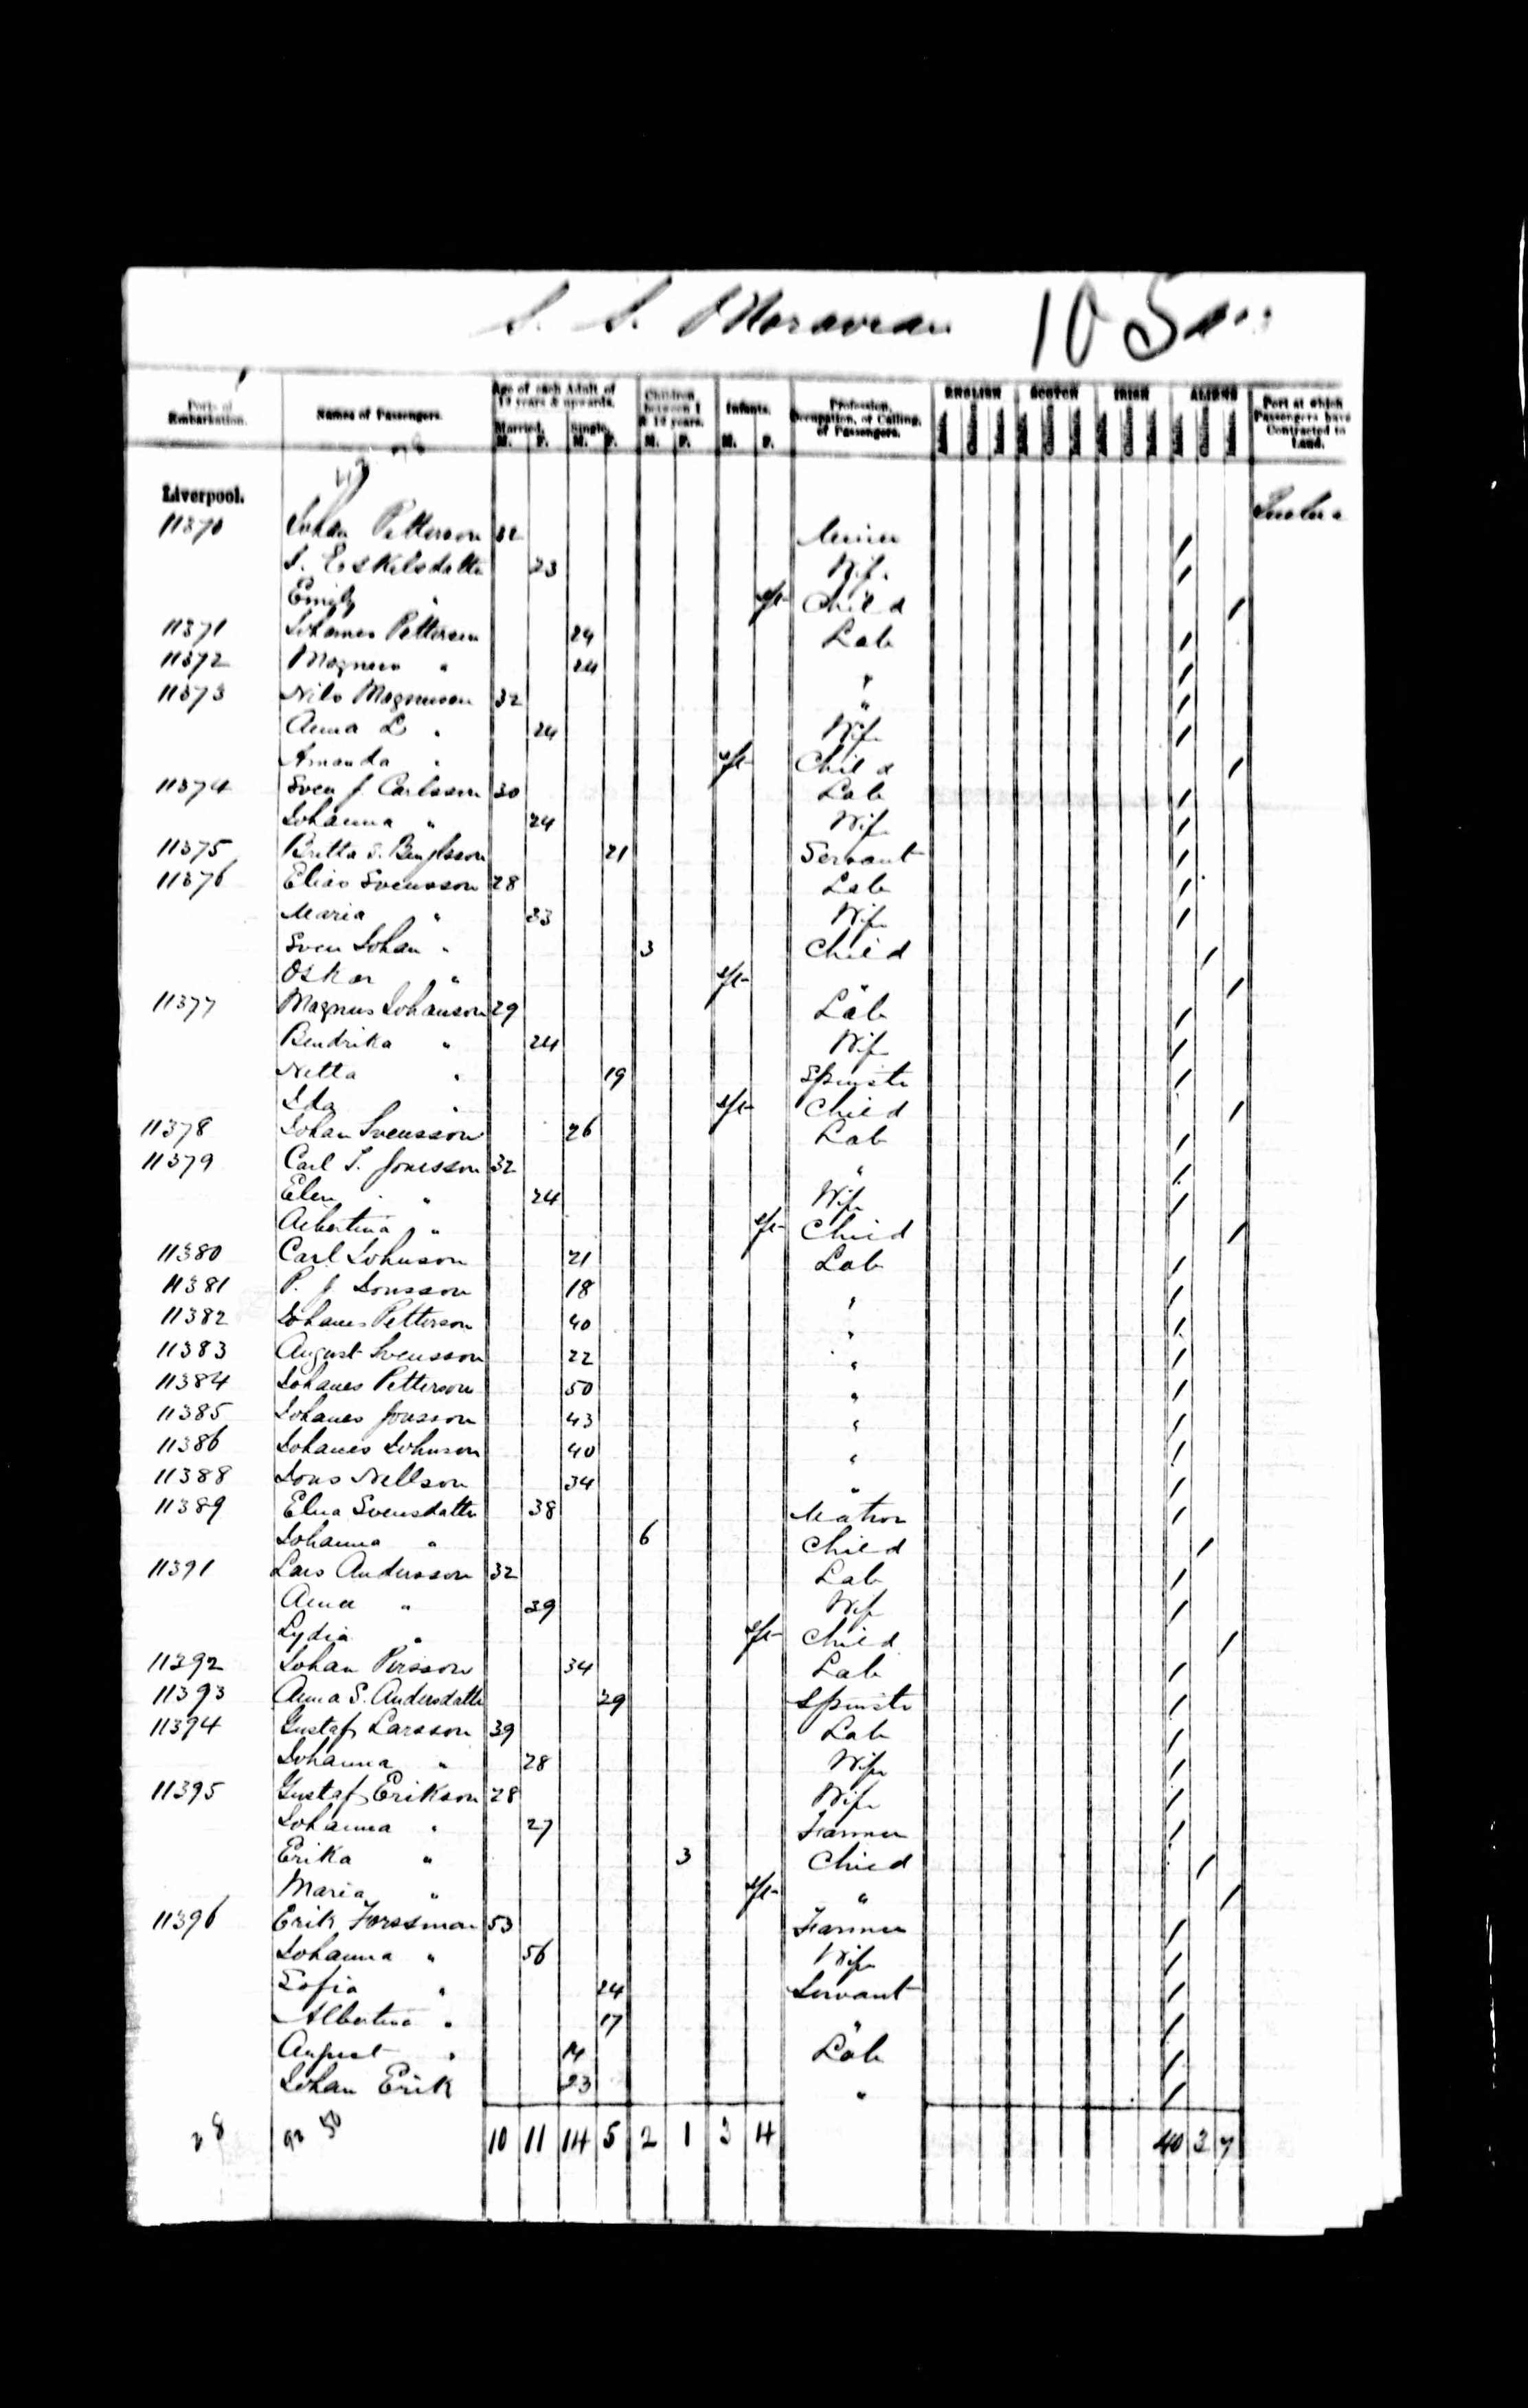 S. S. Moravian 105
Ports of Embarkation. Names of Passengers. Age of each Adult of 12 years & upwards. Children between 1 & 12 years. Infants. Profession, Occupation, or Calling, of Passengers. ENGLISH SCOTCH IRISH ALIENS Port at which Passengers have Contracted to Land.
Married. Single.
M. F. M. F. M. F. M. F.
Liverpool.
11370 Johan Petterson 32 Miner /
S. Eskilsdatter 23 Wife /
Emily " Inft Child /
11371 Johannes Petterson 24 Lab /
11372 Magnus " 24 " /
11373 Nils Magnusson 32 " /
Anna L " 24 Wife /
Amanda " Inft Child /
11374 Sven J Carlsson 30 Lab /
Johanna " 24 Wife /
11375 Britta S. Bengtsson 21 Servant /
11376 Elias Svensson 28 Lab /
Maria " 33 Wife /
Sven Johan " 3 Child /
Oskar " Inft " /
11377 Magnus Johanson 29 Lab /
Bendrika " 24 Wife /
Netta " 19 Spinster /
Ida " Inft Child /
11378 Johan Svensson 26 Lab /
11379 Carl S. Jonesson 32 " /
Elen " 24 Wife /
Albertina " Inft Child /
11380 Carl Johnson 21 Lab /
11381 P. J Jonsson 18 " /
11382 Johanes Petterson 40 " /
11383 August Svensson 22 " /
11384 Johanes Petterson 50 " /
11385 Johanes Jonsson 43 " /
11386 Johanes Johnson 40 " /
11388 Jons Nellson 34 " /
11389 Elna Svensdatter 38 Matron /
Johanna " 6 Child /
11391 Lars Andersson 32 Lab /
Anna " 39 Wife /
Lydia " Inft Child /
11392 Johan Persson 34 Lab /
11393 Anna S. Andersdatter 29 Spinster /
11394 Gustaf Larsson 39 Lab /
Johanna " 28 Wife /
11395 Gustaf Erikson 28 Wife /
Johanna " 27 Farmer /
Erika " 3 Child /
Maria " Inft " /
11396 Erik Forssman 53 Farmer /
Johanna " 56 Wife /
Sofia " 24 Servant /
Albertina " 17 " /
August " 14 Lab /
Johan Erik 23 " /
28 50 10 11 14 5 2 1 3 4 40 3 7